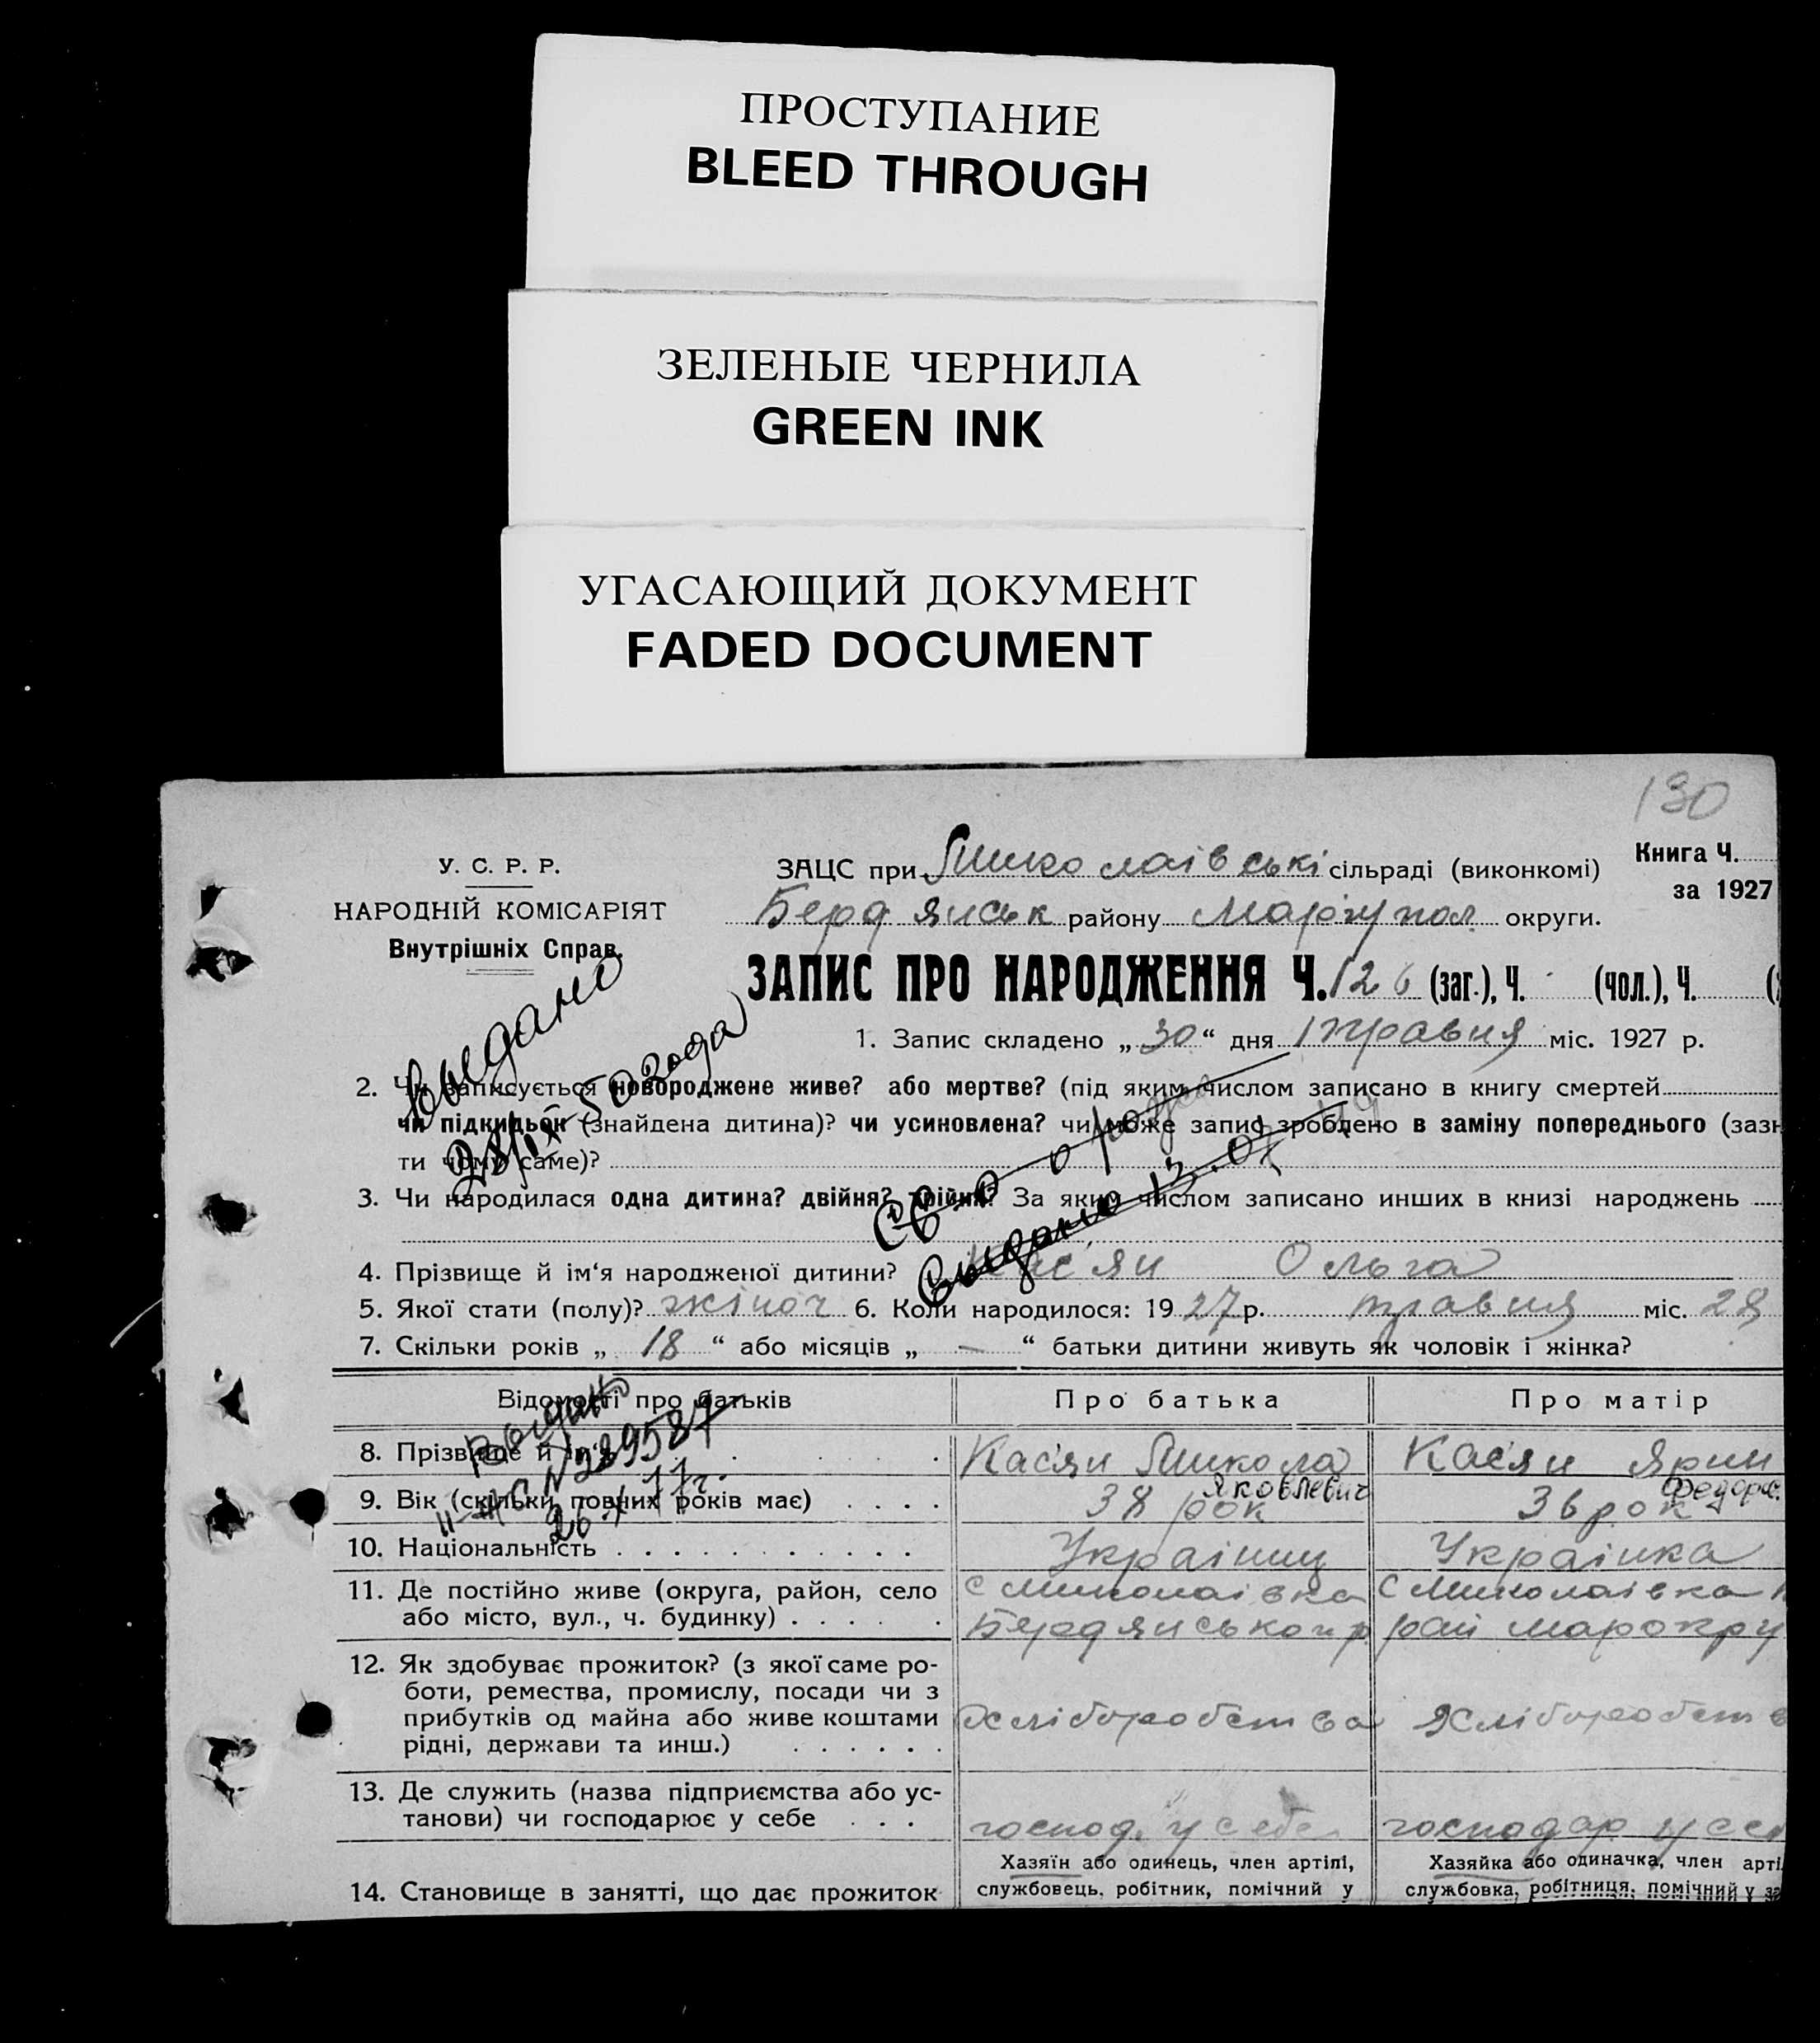 ПРОСТУПАНИЕ
BLEED THROUGH
ЗЕЛЕНЫЕ ЧЕРНИЛА
GREEN INK
УГАСАЮЩИЙ ДОКУМЕНТ
FADED DOCUMENT
130
У. С. Р. Р.
НАРОДНІЙ КОМІСАРІЯТ
Внутрішніх Справ.
ЗАЦС при Миколаівські сільраді (виконкомі)
Книга Ч.
за 1927
Бердянськ району Маріупол округи.
ЗАПИС ПРО НАРОДЖЕННЯ Ч. 126 (заг.), Ч. (чол.), Ч.
1. Запис складено „ 30 “ дня травня міс. 1927 р.
Выдано
28/IX 50 года
2. Чи записується новороджене живе? або мертве? (під яким числом записано в книгу смертей
чи підкидьок (знайдена дитина)? чи усиновлена? чи може запис зроблено в заміну попереднього (зазн
ти чому саме)?
3. Чи народилася одна дитина? двійня? трійня? За яким числом записано инших в книзі народжень
Св-о о рожд
Выдано 13.07
4. Прізвище й ім‘я народженої дитини? Кас'ян Ольга
5. Якої стати (полу)? жіноч 6. Коли народилося: 1927 р. травня міс. 28
7. Скільки років „ 18 “ або місяців „ — “ батьки дитини живуть як чоловік і жінка?
Відомості про батьків Про батька Про матір
Выдано
№ 289587
26 X 77г.
8. Прізвище й ім‘я Кас'ян Микола Кас'ян Ярин
Яковлевич Федоров.
9. Вік (скільки повних років має) 38 рок 36 рок
10. Національність Українц Українка
11. Де постійно живе (округа, район, село с Миколаівка с Миколаівка
або місто, вул., ч. будинку) Бердянського р рай Марокру
12. Як здобуває прожиток? (з якої саме ро-
боти, ремества, промислу, посади чи з
прибутків од майна або живе коштами Хліборобства Хліборобств
рідні, держави та инш.)
13. Де служить (назва підприємства або ус-
танови) чи господарює у себе господ. у себе господар у себ
14. Становище в занятті, що дає прожиток
Хазяїн або одинець, член артілі,
службовець, робітник, помічний у
Хазяйка або одиначка, член арті
службовка, робітниця, помічний у за